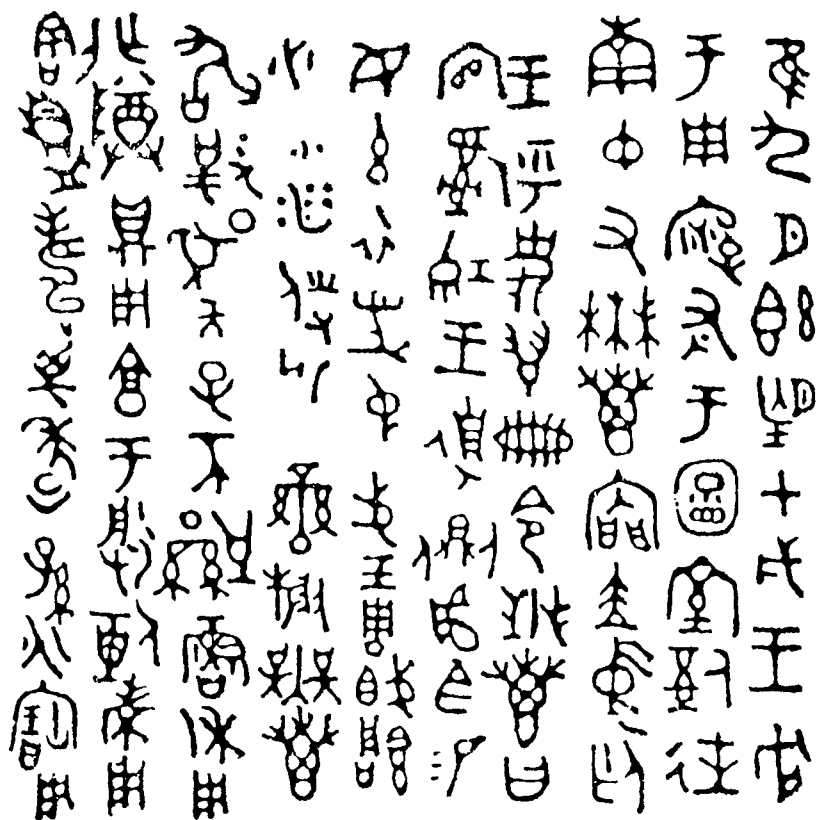 隹九月既望甲戌王各
于周廟述于圖室𤔲徒
南中右無叀內門立中廷
王乎史翏冊令無叀曰
官𤔲王側虎臣易
女玄衣黹屯戈琱必
彤沙攸勒鑾旂無叀
敢對揚天子不顯魯休用
乍尊鼎用享于朕剌考用
割眉壽萬年子孫永寶用